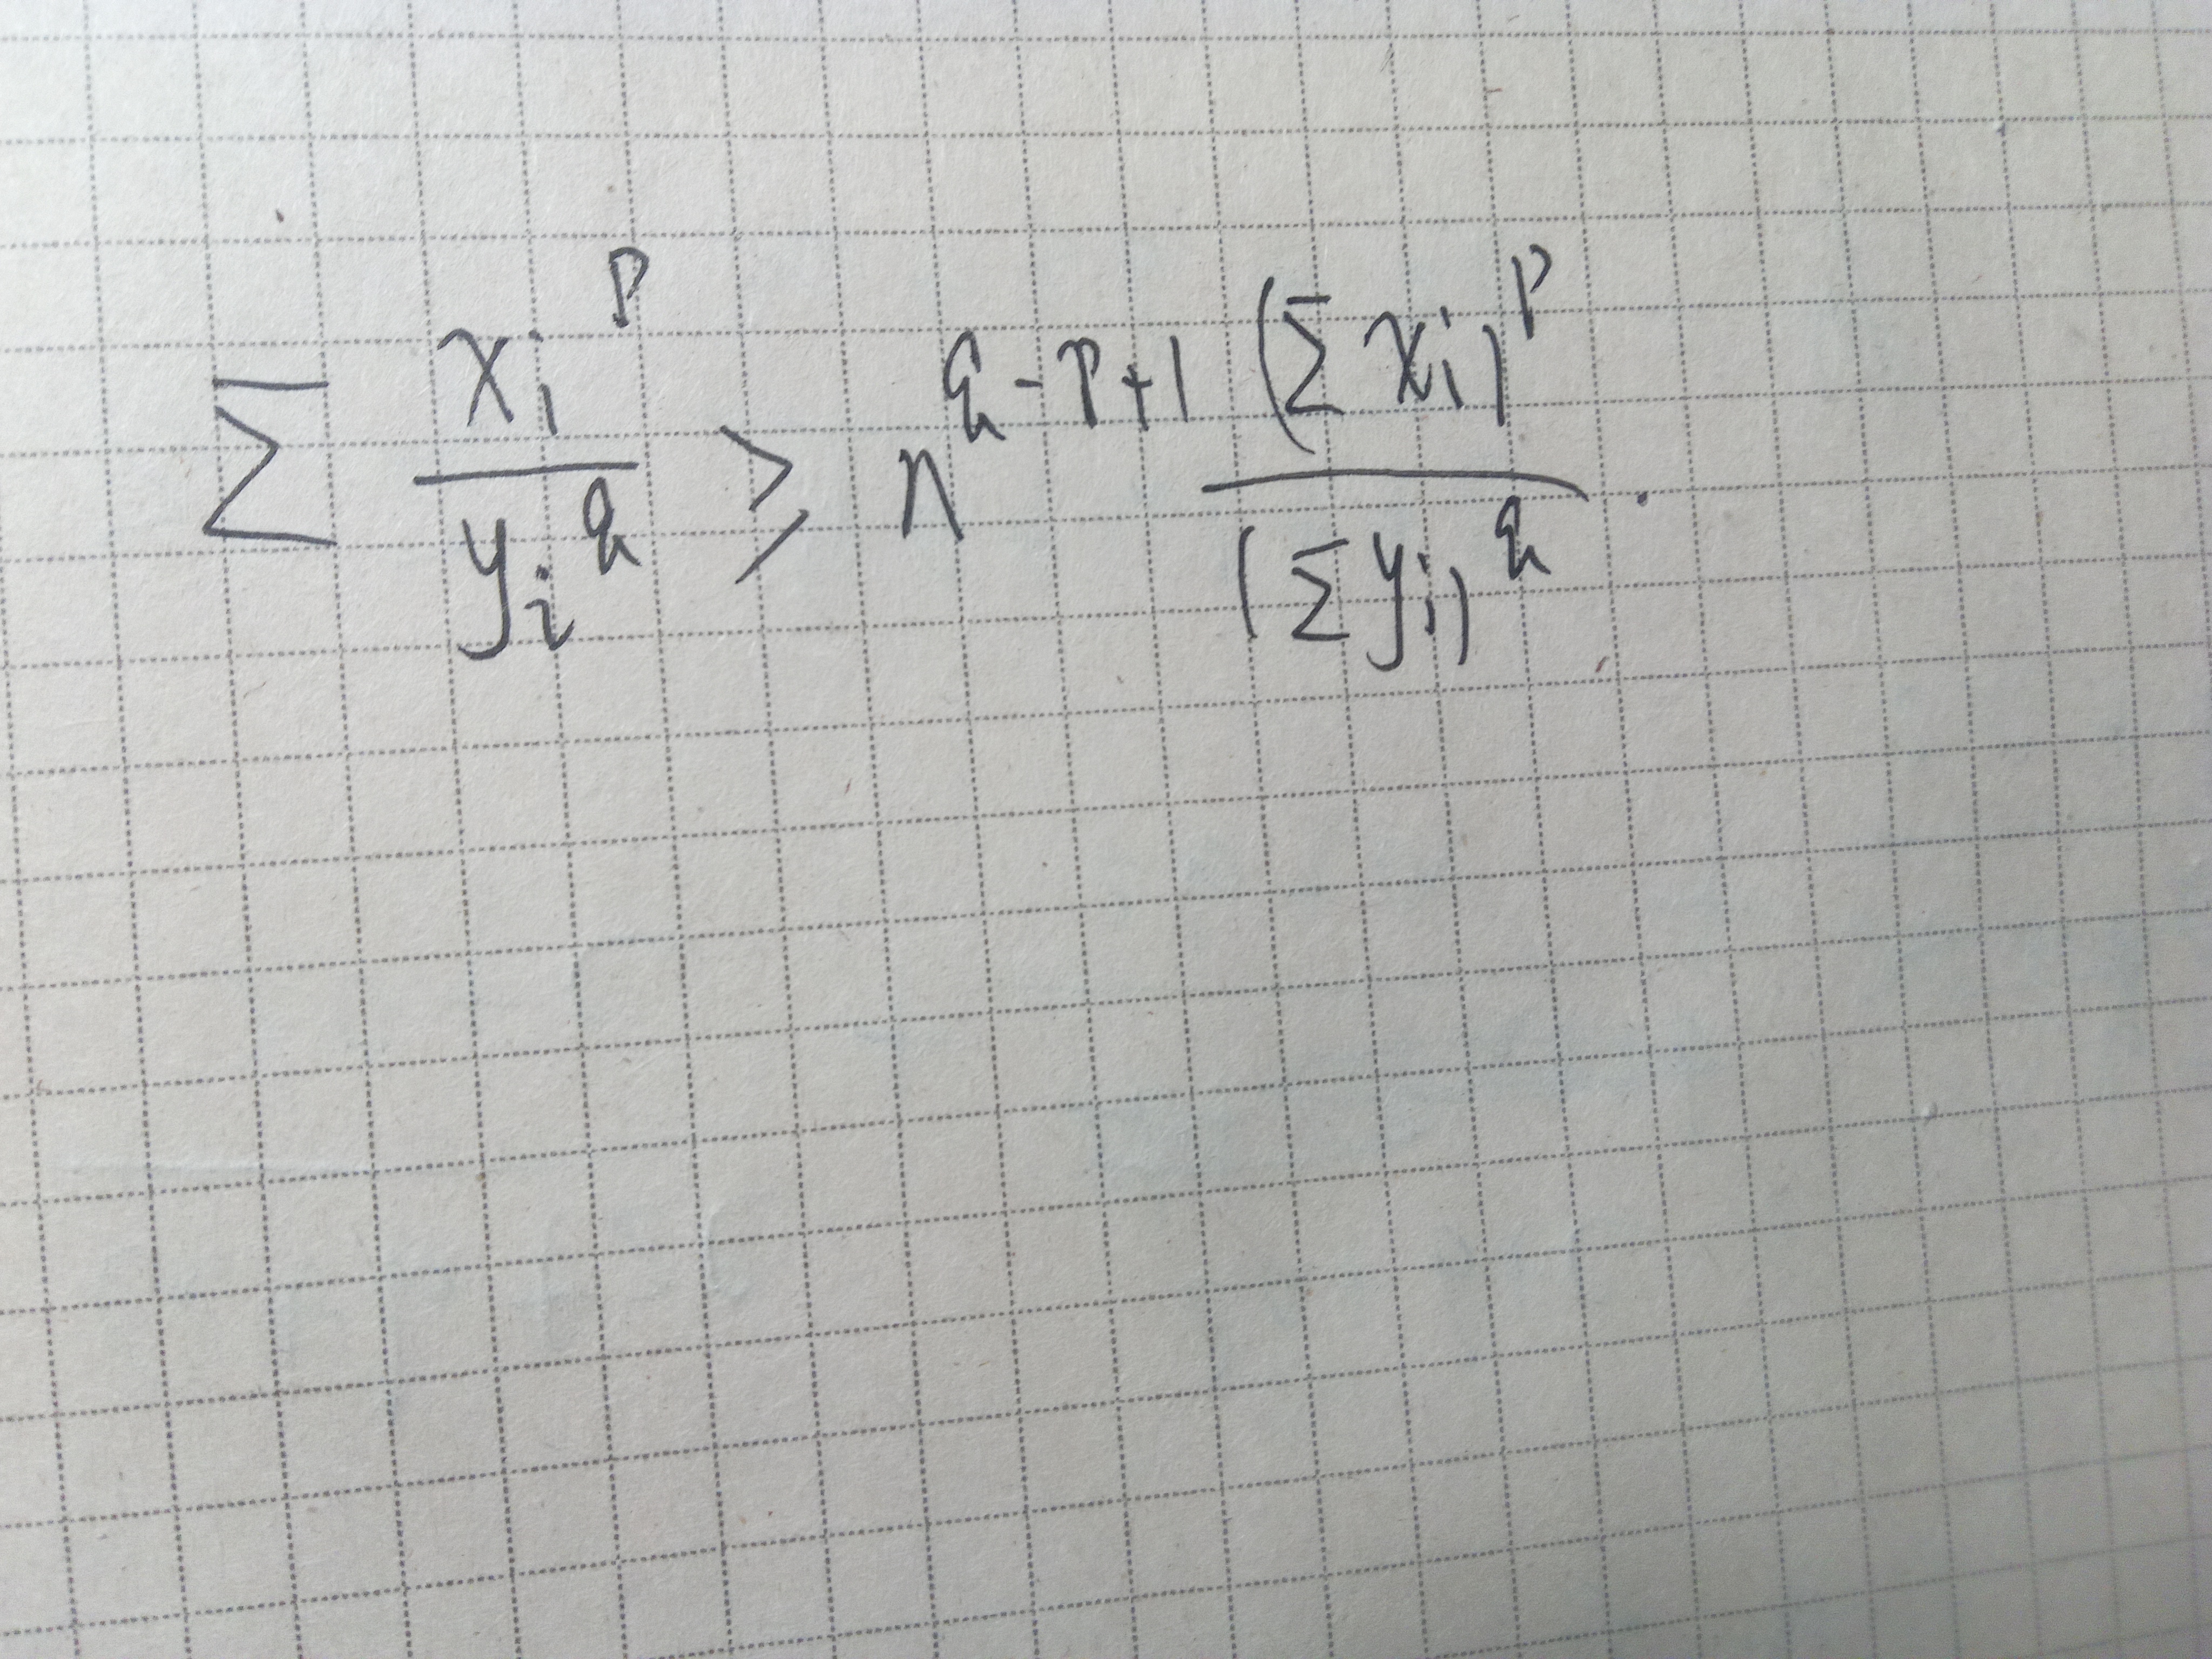 \sum \frac{x_i^p}{y_i^q} \geq n^{q-p+1} \frac{(\sum x_i)^p}{(\sum y_i)^q}.